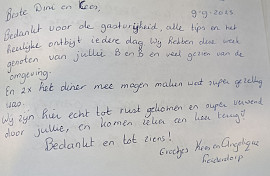 Beste Dini en Kees, 9-9-2023
Bedankt voor de gastvrijheid, alle tips en het
heerlijke ontbijt iedere dag. Wij hebben deze week
genoten van jullie B en B en veel gezien van de
omgeving.
En 2x het diner mee mogen maken wat super gezellig
was.
Wij zijn hier echt tot rust gekomen en super verwend
door jullie, en komen zeker een keer terug
Bedankt en tot ziens!
Groetjes Kees en Angelique